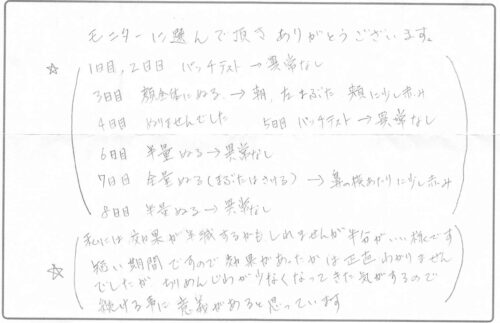 モニターに選んで頂きありがとうございます。
☆ 1日目,2日目 パッチテスト→異常なし
3日目 顔全体にぬる→朝、左まぶた 頬に少し赤み
4日目 ぬりませんでした 5日目 パッチテスト→異常なし
6日目 半量ぬる→異常なし
7日目 全量ぬる(まぶたはさける)→鼻の横あたりに少し赤み
8日目 半量ぬる→異常なし
私には効果が半減するかもしれませんが半分が…いい様です
☆ 短い期間ですので効果があったかは正直わかりません
でしたが 切りめんじわが少なくなってきた気がするので
続ける事に意義があると思っています